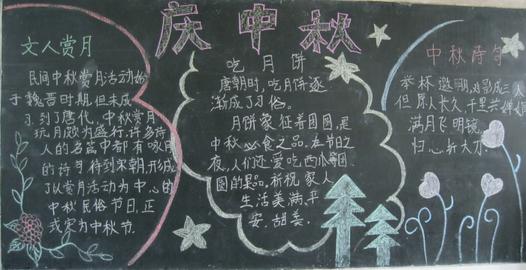 庆中秋
文人赏月
民间中秋赏月活动始
于魏晋时期但未成
习到了唐代，中秋赏月
玩月颇为盛行，许多诗
人的名篇中都有咏月
的诗句待到宋朝，形成
了以赏月活动为中心的
中秋民俗节日，正
式定为中秋节
吃月饼
唐朝时，吃月饼逐
渐成了习俗。
月饼象征着团圆，是
中秋必食之品，在节日之
夜，人们还爱吃西瓜等团
圆的果品，祈祝家人
生活美满平
安，甜美．
中秋诗句
举杯邀明，对影成三人
但愿人长久，千里共婵
满月飞明镜，
归心折大刀